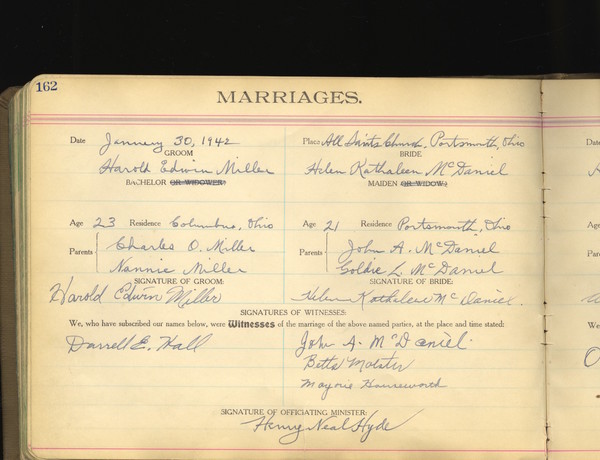 162
MARRIAGES.
Date January 30, 1942 Place All Saints Church, Portsmouth, Ohio Date
GROOM BRIDE
Harold Edwin Miller Helen Kathaleen McDaniel
BACHELOR OR WIDOWER: MAIDEN OR WIDOW:
Age 23 Residence Columbus, Ohio Age 21 Residence Portsmouth, Ohio Age
Parents Charles O. Miller Parents John A. McDaniel Parents
Nannie Miller Goldie L. McDaniel
SIGNATURE OF GROOM: SIGNATURE OF BRIDE:
Harold Edwin Miller Helen Kathaleen McDaniel.
SIGNATURES OF WITNESSES:
We, who have subscribed our names below, were Witnesses of the marriage of the above named parties, at the place and time stated: We,
Darrell E. Hall John A. McDaniel.
Betta
Marjorie Houseworth
SIGNATURE OF OFFICIATING MINISTER:
Henry Neal Hyde